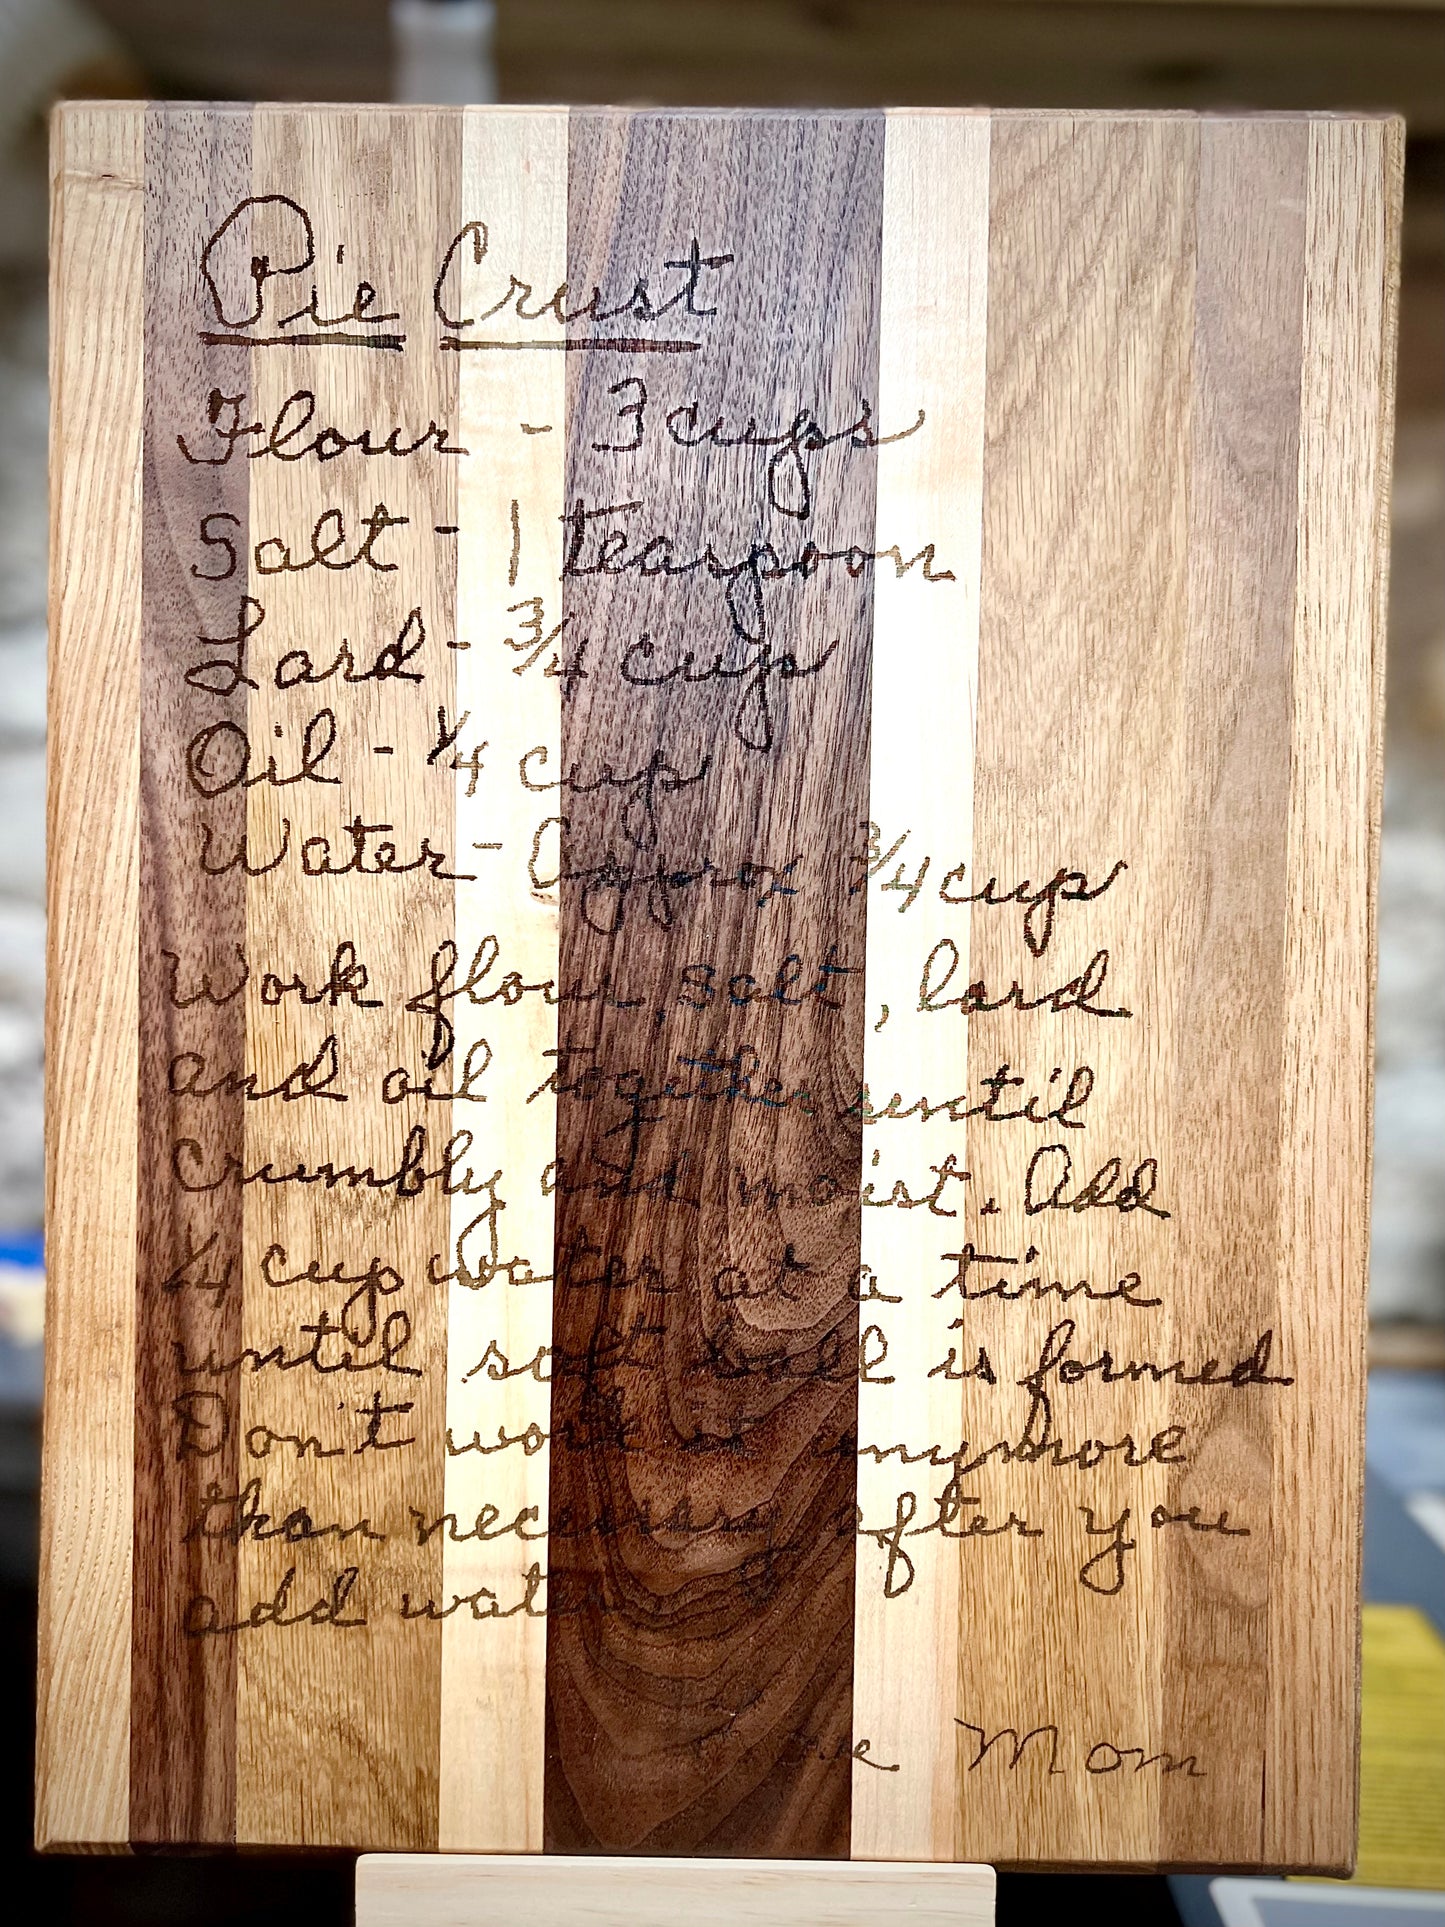 Pie Crust
Flour - 3 cups
Salt - 1 teaspoon
Lard - 3/4 cup
Oil - 1/4 cup
Water - Approx 3/4 cup
Work flour, salt, lard
and oil together until
crumbly and moist. Add
1/4 cup water at a time
until soft ball is formed
Don't work it anymore
than necessary after you
add water
Love Mom